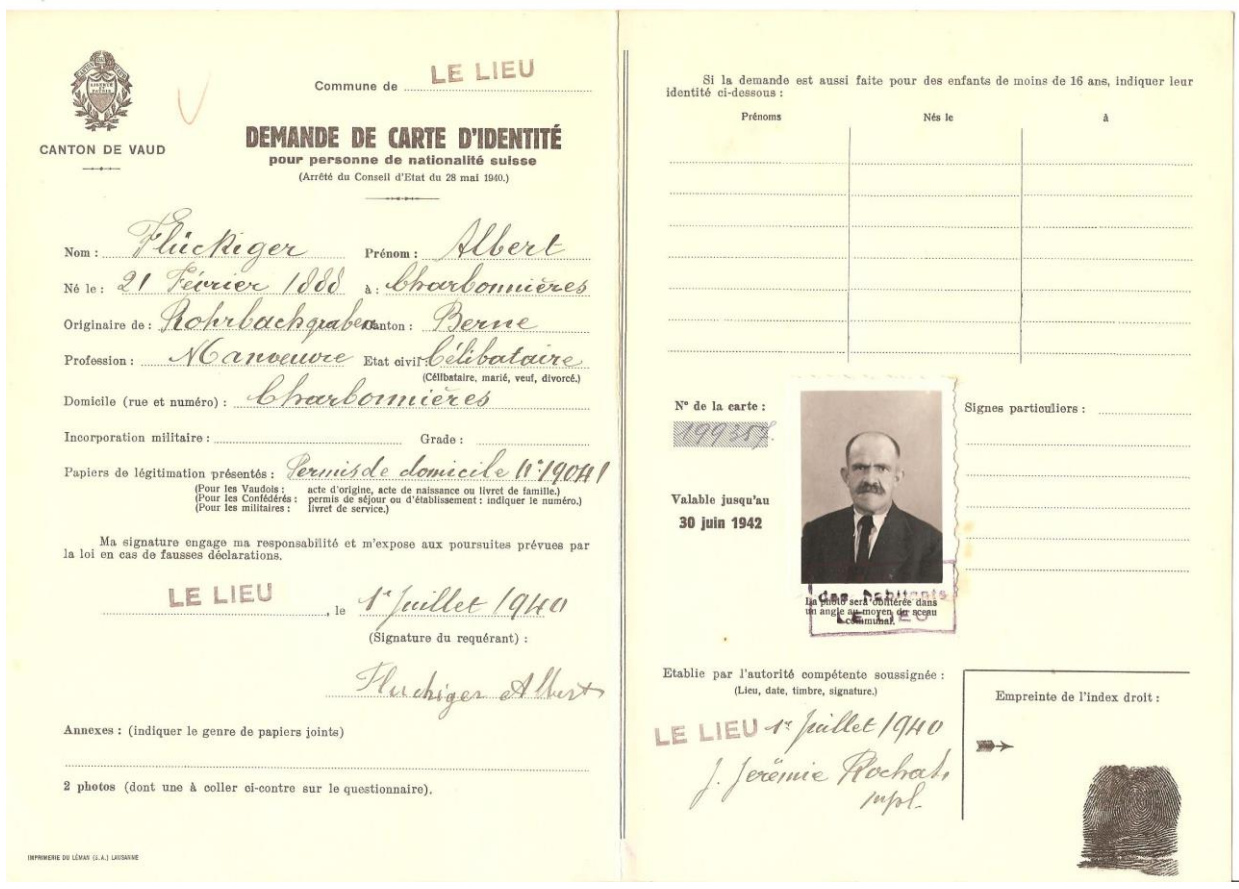 CANTON DE VAUD
Commune de LE LIEU
DEMANDE DE CARTE D'IDENTITÉ
pour personne de nationalité suisse
(Arrêté du Conseil d'Etat du 28 mai 1940.)
Nom : Flückiger Prénom : Albert
Né le : 21 Février 1888 à : Charbonnières
Originaire de : Rohrbachgraben Canton : Berne
Profession : Manoeuvre Etat civil : Célibataire
(Célibataire, marié, veuf, divorcé.)
Domicile (rue et numéro) : Charbonnières
Incorporation militaire : Grade :
Papiers de légitimation présentés : Permis de domicile N° 19041
(Pour les Vaudois : acte d'origine, acte de naissance ou livret de famille.)
(Pour les Confédérés : permis de séjour ou d'établissement : indiquer le numéro.)
(Pour les militaires : livret de service.)
Ma signature engage ma responsabilité et m'expose aux poursuites prévues par
la loi en cas de fausses déclarations.
LE LIEU, le 1er Juillet 1940
(Signature du requérant) :
Fluckiger Albert
Annexes : (indiquer le genre de papiers joints)
2 photos (dont une à coller ci-contre sur le questionnaire).
IMPRIMERIE DU LÉMAN (S.A.) LAUSANNE
Si la demande est aussi faite pour des enfants de moins de 16 ans, indiquer leur
identité ci-dessous :
Prénoms Nés le à
N° de la carte :
199357.
Signes particuliers :
Valable jusqu'au
30 juin 1942
des habitants
LE LIEU
La photo sera oblitérée dans
un angle au moyen du sceau
communal.
Etablie par l'autorité compétente soussignée :
(Lieu, date, timbre, signature.)
LE LIEU 1er juillet 1940
J. Jérémie Rochat,
mpl.
Empreinte de l'index droit :